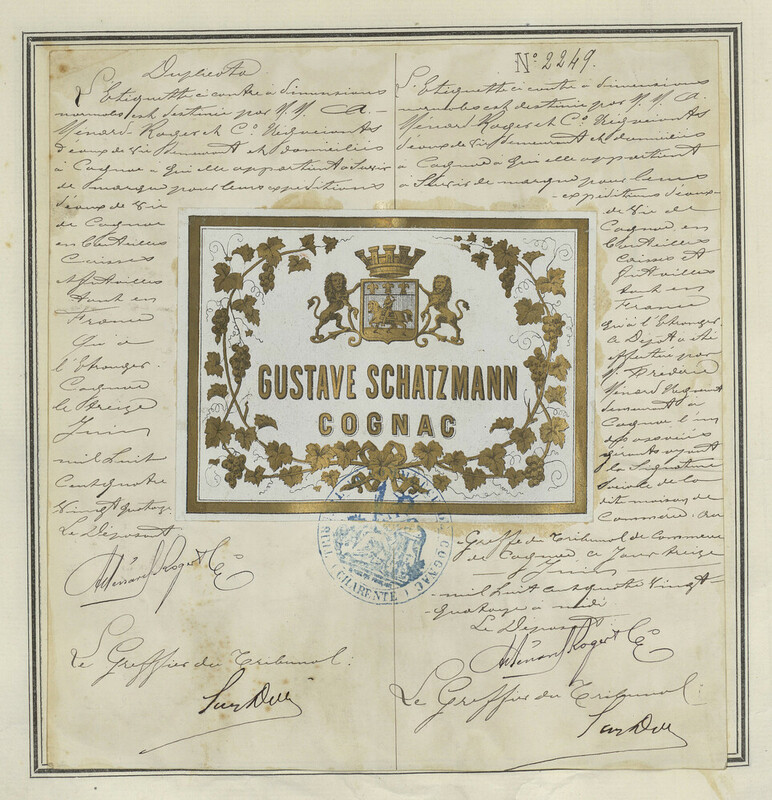 Duplicata
L'Etiquette ci contre à dimensions
normales est destinée par M.M. A.
Ménard Roger et Cº Négociants
d'eaux de vie demeurant et domiciliés
à Cognac à qui elle appartient à servir
de marque pour leurs expéditions
d'eaux de vie
de Cognac
en bouteilles
Caisses
et futailles
tant en
France
qu'à
l'Etranger.
Cognac
le treize
Juin
mil huit
cent quatre
vingt quatorze
Le Déposant
A Ménard Roger & Cº
Le Greffier du Tribunal:
Nº 2249.
L'Etiquette ci contre à dimensions
normales est destinée par M.M. A.
Ménard Roger et Cº Négociants
d'eaux de vie demeurant et domiciliés
à Cognac à qui elle appartient
à Servir de marque pour leurs
expéditions d'eaux
de vie de
Cognac en
bouteilles
Caisses et
futailles
tant en
France
qu'à l'Etranger.
Ce Dépôt a été
effectué par
Ménard Négociant
demeurant à
Cognac l'un
des associés
gérants ayant
la Signature
Sociale de la
dite maison de
Commerce. Au
Greffe du Tribunal de Commerce
de Cognac ce Jour treize
Juin
mil huit cent quatre vingt
quatorze à midi
Le Déposant:
A Ménard Roger & Cº
Le Greffier du Tribunal:
GUSTAVE SCHATZMANN
COGNAC
COGNAC
(CHARENTE)